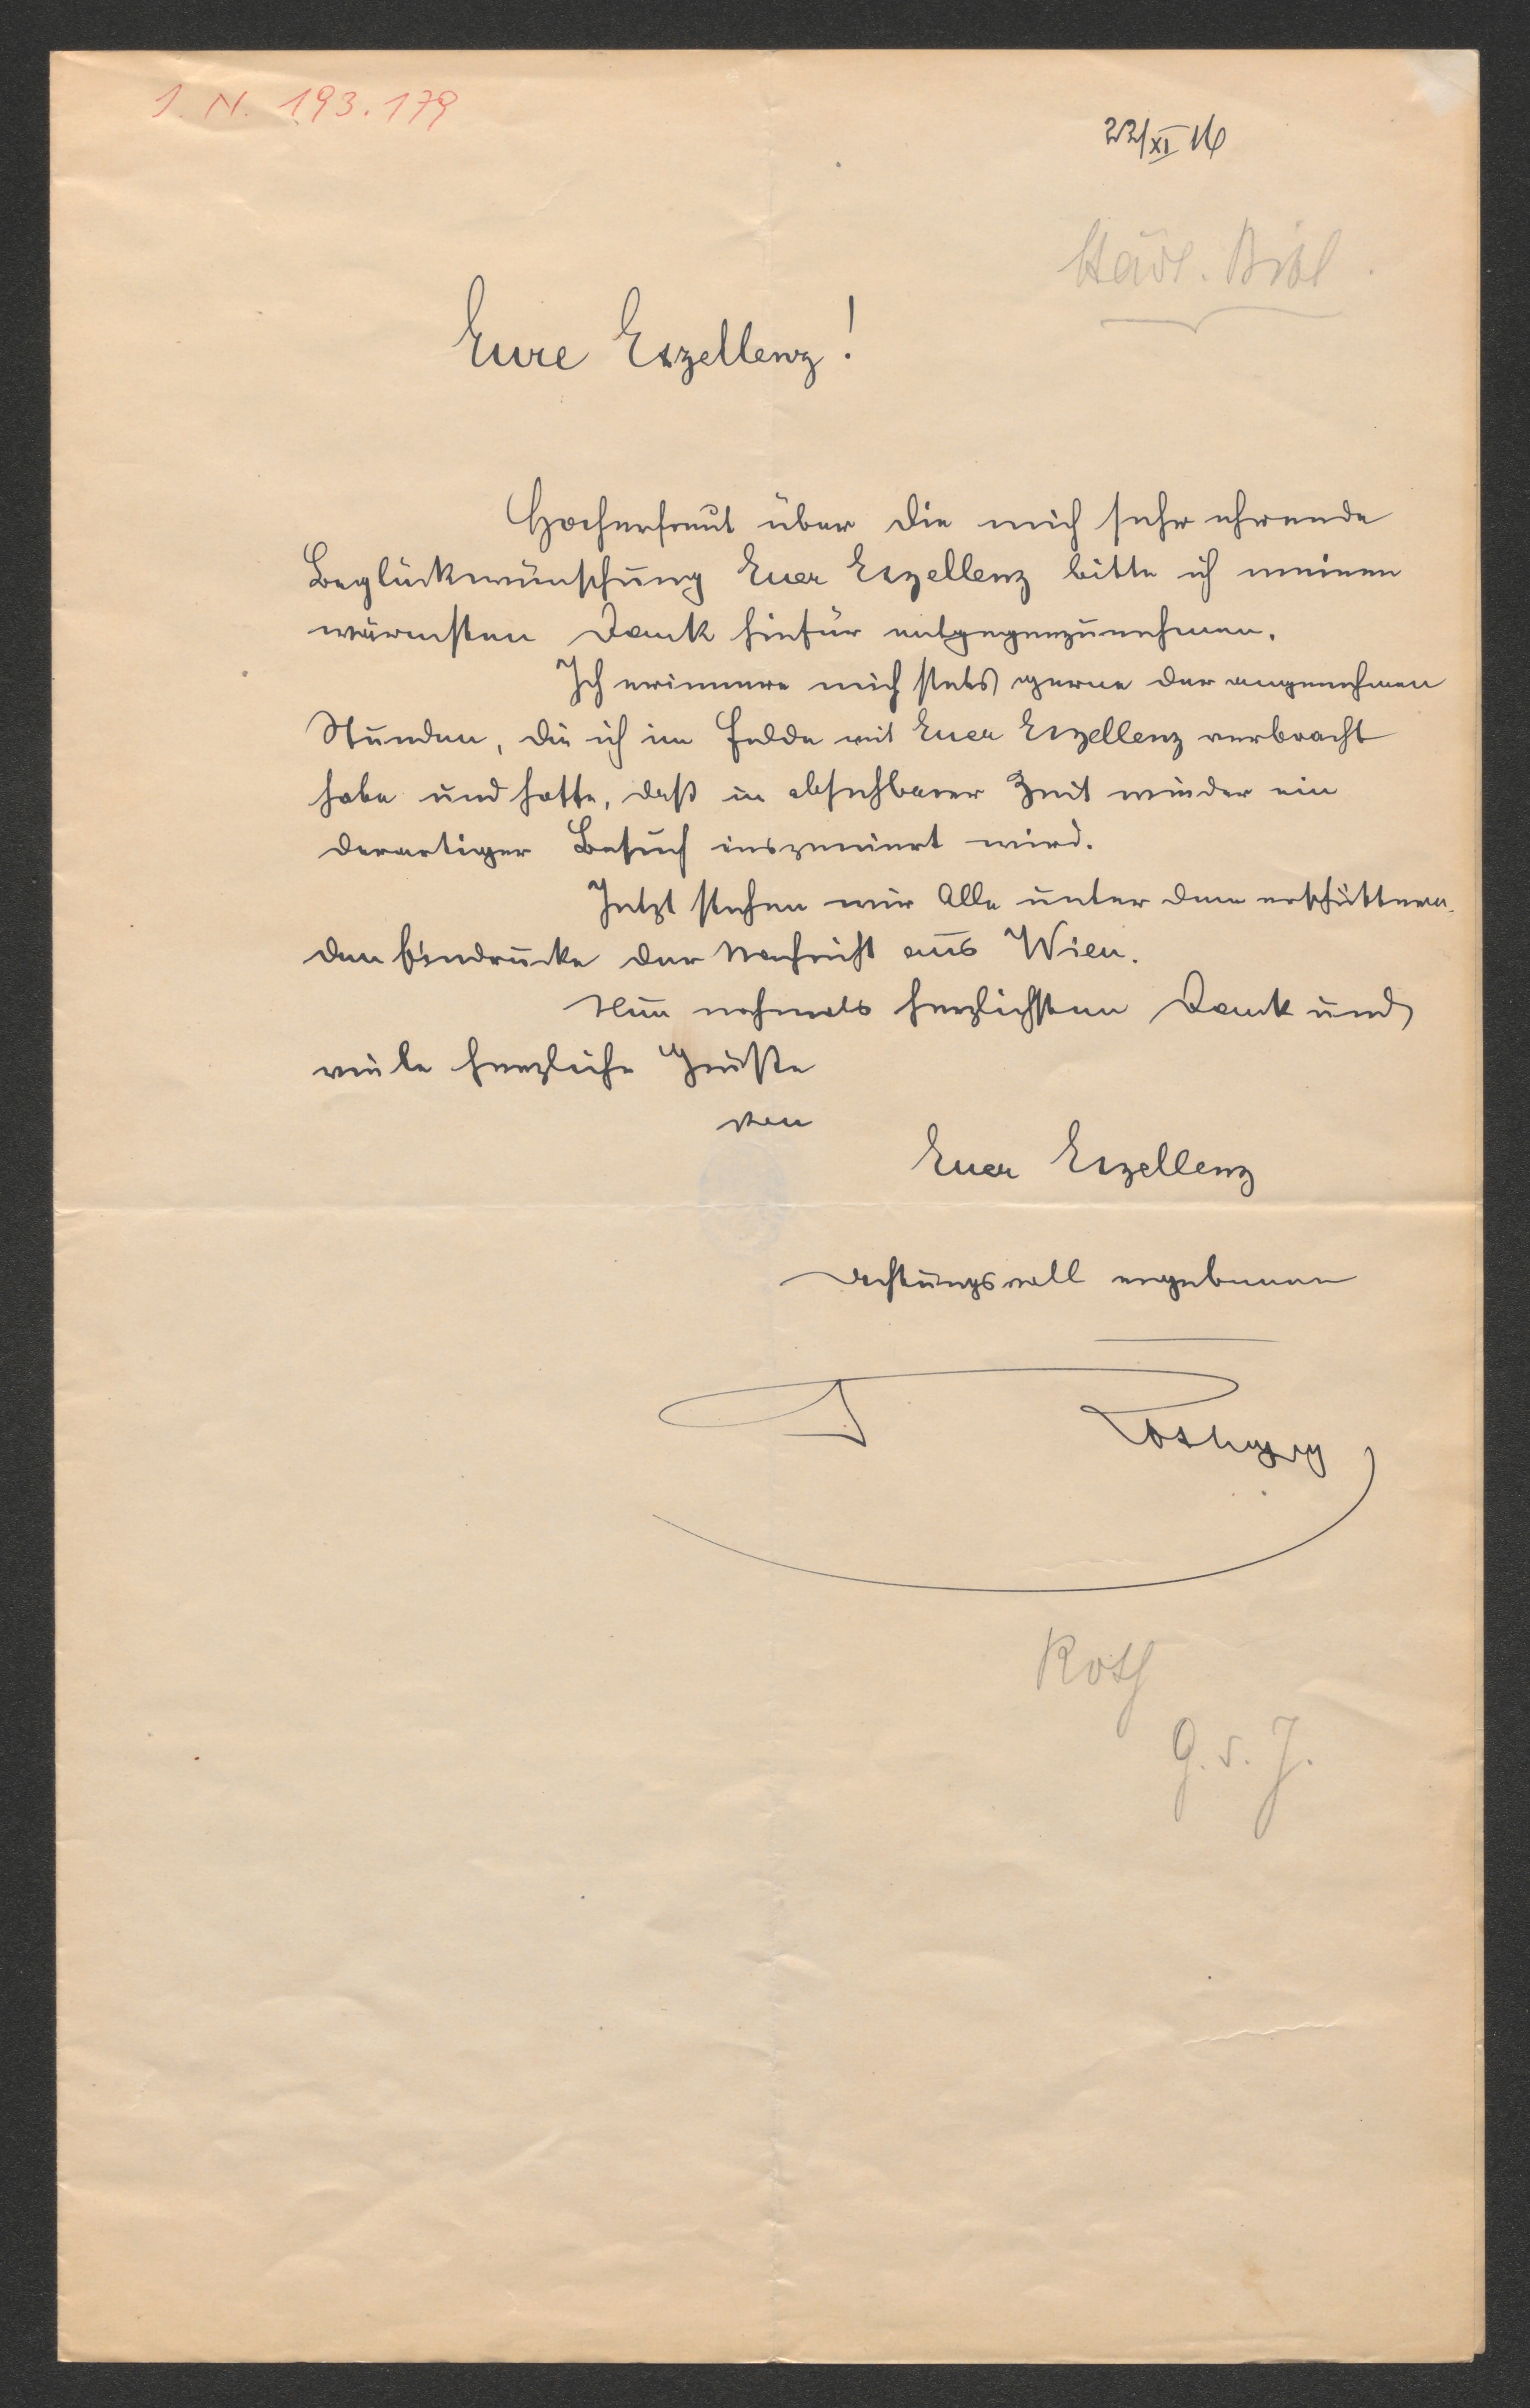 I. N. 193.179
22/XI 16
Städt. Bibl.
Eure Exzellenz!
Hocherfreut über die mich sehr ehrende
Beglückwünschung Euer Exzellenz bitte ich meinen
wärmsten Dank hiefür entgegenzunehmen.
Ich erinnere mich stets gerne der angenehmen
Stunden, die ich im Felde mit Euer Exzellenz verbracht
habe und hoffe, daß in absehbarer Zeit wieder ein
derartiger Besuch inszeniert wird.
Jetzt stehen wir Alle unter dem erschüttern-
den Eindrucke der Nachricht aus Wien.
Nun nochmals herzlichsten Dank und
viele herzliche Grüße
von
Euer Exzellenz
achtungsvoll ergebenen
Roth
G. d. J.